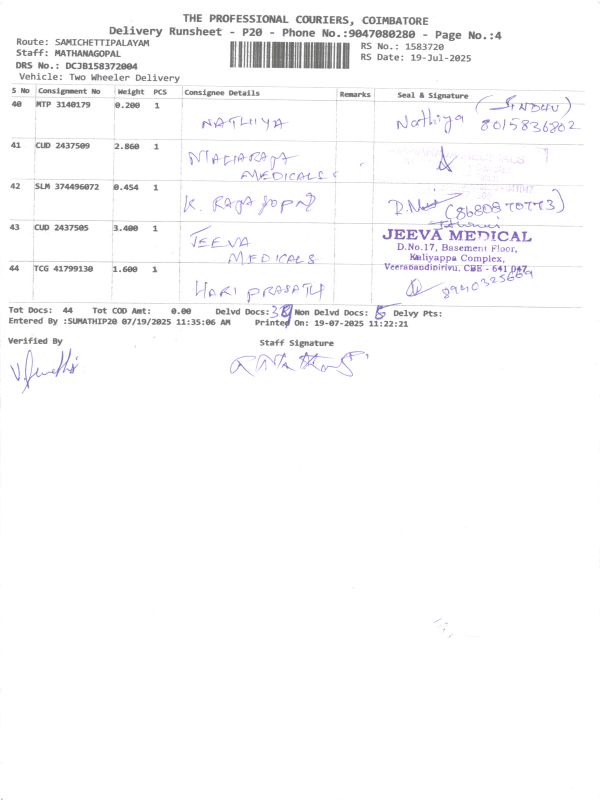 THE PROFESSIONAL COURIERS, COIMBATORE
Delivery Runsheet - P20 - Phone No.:9047080280 - Page No.:4
Route: SAMICHETTIPALAYAM RS No.: 1583720
Staff: MATHANAGOPAL RS Date: 19-Jul-2025
DRS No.: DCJB158372004
Vehicle: Two Wheeler Delivery
S No Consignment No Weight PCS Consignee Details Remarks Seal & Signature
40 MTP 3140179 0.200 1 NATHIYA Nathiya (SINDHU) 8015836802
41 CUD 2437509 2.860 1 MAHARAJA MEDICALS
42 SLM 374496072 0.454 1 K. RAJAGOPAL (8680870773)
43 CUD 2437505 3.400 1 JEEVA MEDICALS
JEEVA MEDICAL
D.No.17, Basement Floor,
Kaliyappa Complex,
Veerapandipirivu, CBE - 641 047
44 TCG 41799130 1.600 1 HARI PRASATH
Tot Docs: 44 Tot COD Amt: 0.00 Delvd Docs: Non Delvd Docs: Delvy Pts:
Entered By :SUMATHIP20 07/19/2025 11:35:06 AM Printed On: 19-07-2025 11:22:21
Verified By Staff Signature